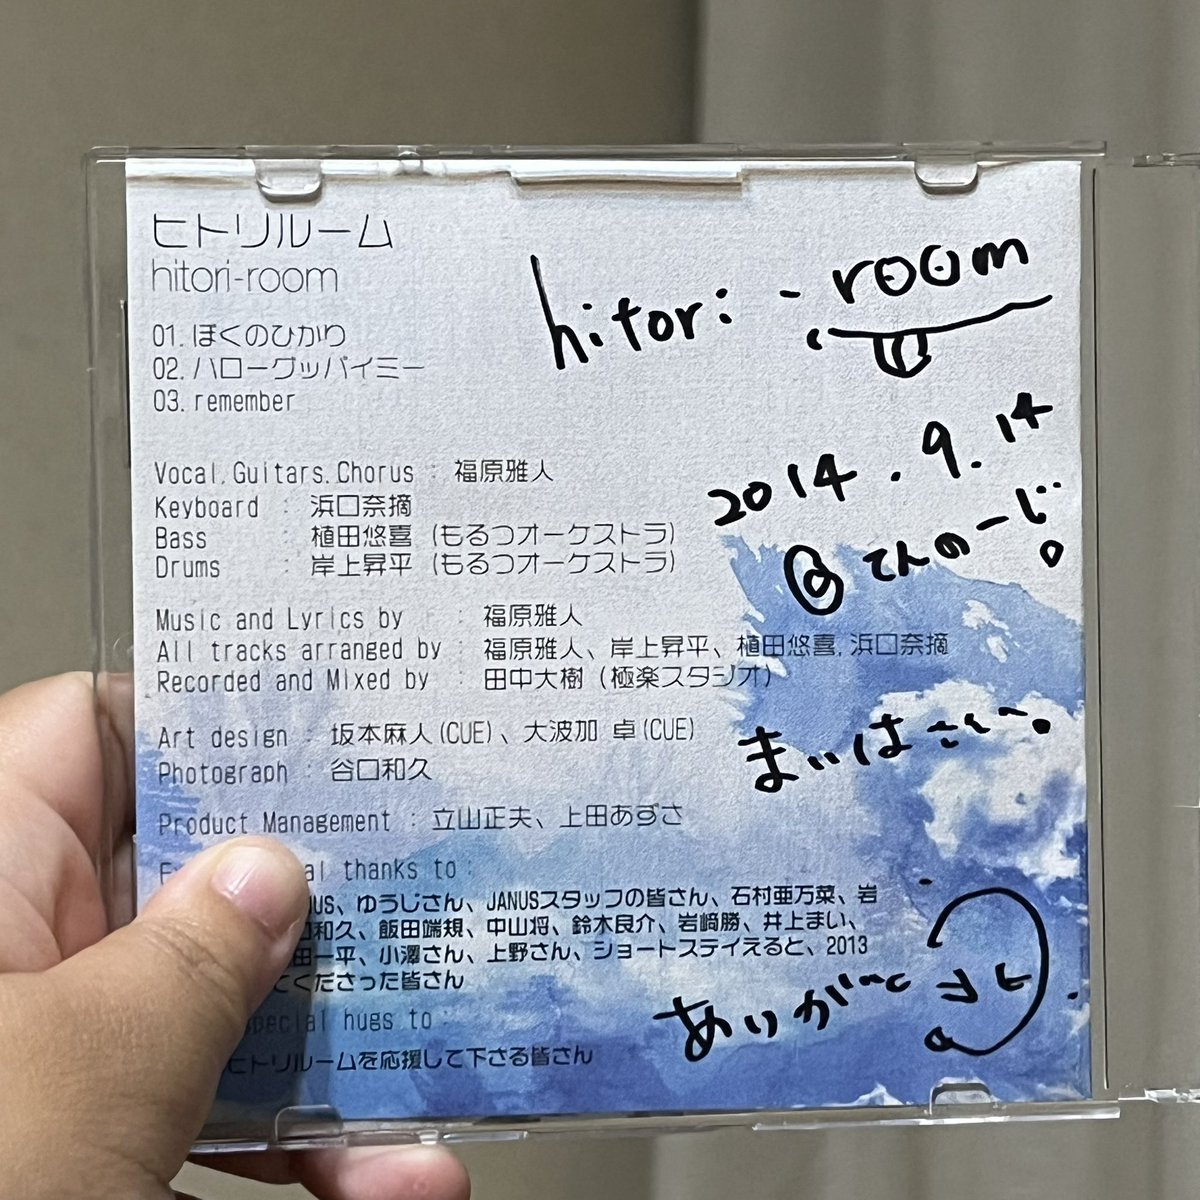 ヒトリルーム
hitori-room
01. ぼくのひかり
02. ハローグッバイミー
03. remember
Vocal, Guitars, Chorus : 福原雅人
Keyboard : 浜口奈摘
Bass : 植田悠喜 (もるつオーケストラ)
Drums : 岸上昇平 (もるつオーケストラ)
Music and Lyrics by : 福原雅人
All tracks arranged by : 福原雅人、岸上昇平、植田悠喜, 浜口奈摘
Recorded and Mixed by : 田中大樹 (極楽スタジオ)
Art design : 坂本麻人(CUE)、大波加 卓(CUE)
Photograph : 谷口和久
Product Management : 立山正夫、上田あずさ
thanks to :
ゆうじさん、JANUSスタッフの皆さん、石村亜万菜、岩
和久、飯田端規、中山将、鈴木良介、岩﨑勝、井上まい、
田一平、小澤さん、上野さん、ショートステイえると、2013
てくださった皆さん
special hugs to :
ヒトリルームを応援して下さる皆さん
hitori-room
2014.9.14
@てんのーじ。
まいはさん。
ありがと